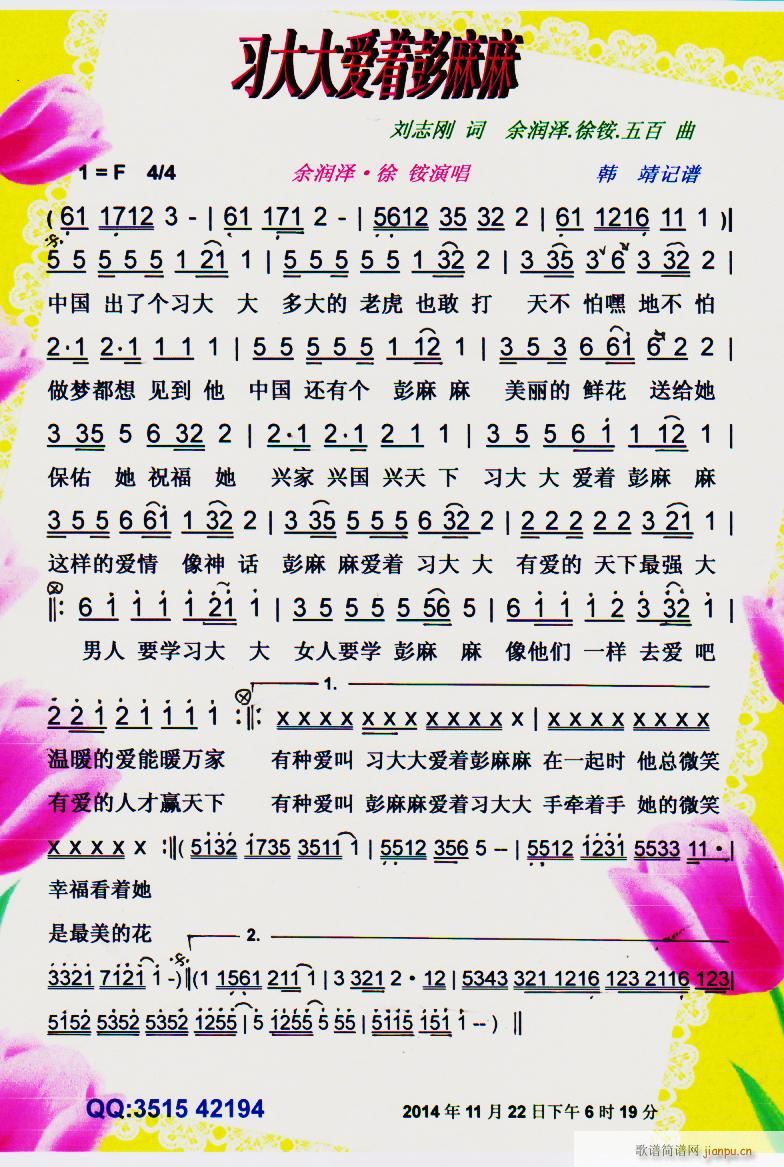 习大大爱着彭麻麻
刘志刚 词 余润泽.徐铵.五百 曲
1 = F 4/4 余润泽·徐 铵演唱 韩 靖记谱
( 61 1712 3 - | 61 171 2 - | 5612 35 32 2 | 61 1216 11 1 )|
5 5 5 5 5 1 21 1 | 5 5 5 5 5 1 32 2 | 3 35 3 6 3 32 2 |
中国 出了个习大 大 多大的 老虎 也敢 打 天不 怕嘿 地不 怕
2·1 2·1 1 1 1 | 5 5 5 5 5 1 12 1 | 3 5 3 6 61 6 2 2 |
做梦都想 见到 他 中国 还有个 彭麻 麻 美丽的 鲜花 送给她
3 35 5 6 32 2 | 2·1 2·1 2 1 1 | 3 5 5 6 1 1 12 1 |
保佑 她 祝福 她 兴家 兴国 兴天 下 习大 大 爱着 彭麻 麻
3 5 5 6 61 1 32 2 | 3 35 5 5 5 6 32 2 | 2 2 2 2 2 3 21 1 |
这样的爱情 像神 话 彭麻 麻爱着 习大 大 有爱的 天下最强 大
‖: 6 1 1 1 1 21 1 | 3 5 5 5 5 56 5 | 6 1 1 1 2 3 32 1 |
男人 要学习大 大 女人要学 彭麻 麻 像他们 一样 去爱 吧
1.
2 2 1 2 1 1 1 1 :‖: X X X X X X X X X X X X | X X X X X X X X
温暖的爱能暖万家 有种爱叫 习大大爱着彭麻麻 在一起时 他总微笑
有爱的人才赢天下 有种爱叫 彭麻麻爱着习大大 手牵着手 她的微笑
X X X X X :‖( 5132 1735 3511 1 | 5512 356 5 -- | 5512 1231 5533 11·|
幸福看着她
是最美的花
2.
3321 7121 1 -)‖(1 1561 211 1 | 3 321 2·12 | 5343 321 1216 123 2116 123|
5152 5352 5352 1255 | 5 1255 5 55 | 5115 151 1 -- ) ‖
QQ:3515 42194
2014 年 11 月 22 日下午 6 时 19 分
歌谱简谱网 jianpu.cn